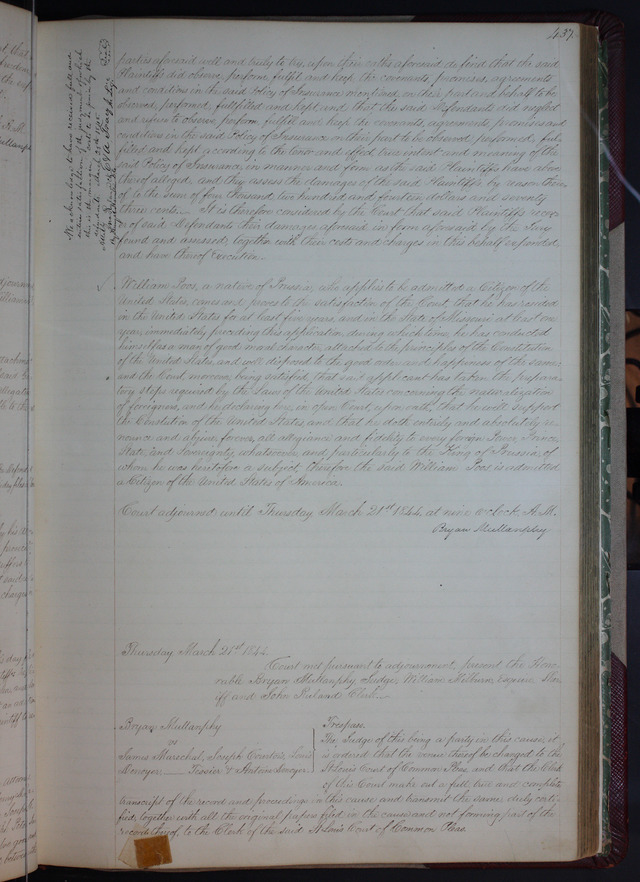 437
parties aforesaid well and truly to try, upon their oaths aforesaid do find that the said
Plaintiffs did observe, perform, fulfil and keep the covenants, promises, agreements
and conditions in the said Policy of Insurance mentioned, on their part and behalf to be
observed, performed, fulfilled and kept, and that the said Defendants did neglect
and refuse to observe, perform, fulfill and keep the covenants, agreements, promises and
conditions in the said Policy of Insurance on their part to be observed, performed, ful-
filled and kept, according to the tenor and effect, true intent and meaning of the
said Policy of Insurance, in manner and form as the said Plaintiffs have above
thereof alleged, and they assess the damages of the said Plaintiffs by reason there-
of to the sum of four thousand, two hundred and fourteen dollars and seventy
three cents. It is therefore considered by the Court that said Plaintiffs recov-
er of said Defendants their damages aforesaid in form aforesaid by the Jury
found and assessed, together with their costs and charges in this behalf expended,
and have thereof execution.
We acknowledge to have received full and
entire satisfaction of the judgment of which
this is the record
William Poos, a native of Prussia, who applies to be admitted a Citizen of the
United States, comes and proves to the satisfaction of the Court, that he has resided
in the United States for at least five years, and in the State of Missouri at least one
year, immediately preceding this application, during which time he has conducted
himself as a man of good moral character, attached to the principles of the Constitution
of the United States, and well disposed to the good order and happiness of the same;
and the Court moreover, being satisfied, that said applicant has taken the prepara-
tory steps required by the Laws of the United States concerning the naturalization
of foreigners, and he declaring here, in open Court, upon oath, that he will support
the Constitution of the United States, and that he doth entirely and absolutely re-
nounce and abjure forever, all allegiance and fidelity to every foreign Power, Prince,
State, and Sovereignty, whatsoever, and particularly to the King of Prussia, of
whom he was heretofore a subject, therefore the said William Poos is admitted
a Citizen of the United States of America.
Court adjourned until Thursday March 21st 1844, at nine o'clock A.M.
Bryan Mullanphy
Thursday March 21st 1844.
Court met pursuant to adjournment, present the Hono-
rable Bryan Mullanphy Judge, William Milburn, Esquire Sher-
iff and John Ruland Clerk.
Bryan Mullanphy
vs
James Marechal, Joseph Courtois, Louis
Tessier & Antoine
Trespass.
The Judge of this being a party in this cause, it
is ordered that the venue thereof be changed to the
St Louis Court of Common Pleas, and that the Clerk
of this Court make out a full, true and complete
transcript of the record and proceedings in this cause and transmit the same duly certi-
fied, together with all the original papers filed in the cause and not forming part of the
record thereof, to the Clerk of the said St Louis Court of Common Pleas.